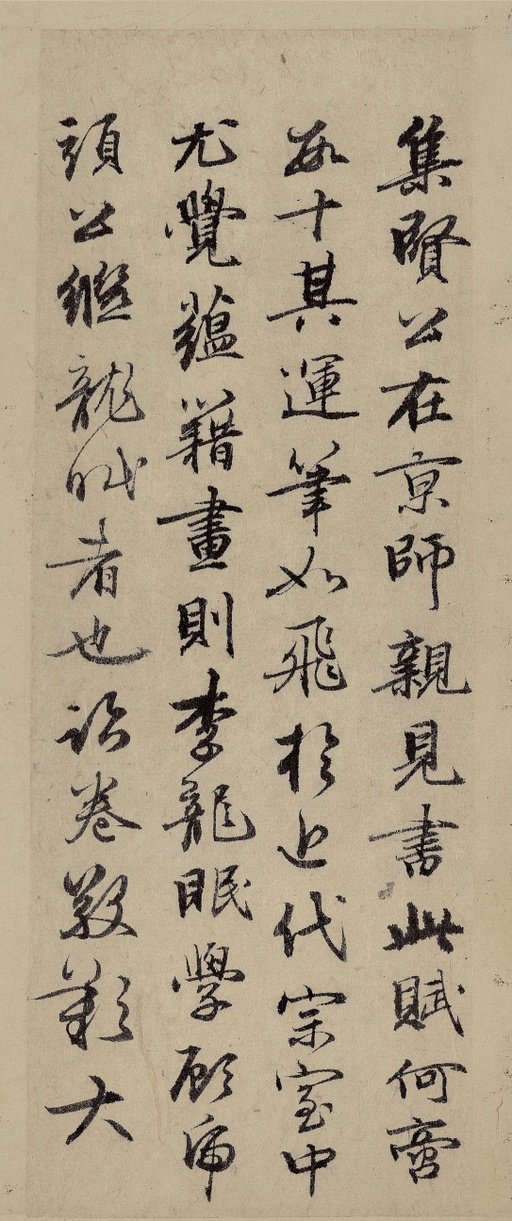 集賢公在京師親見書此賦何啻
數十其運筆如飛於近代宗室中
尤覺蘊籍畫則李龍眠學顧虎
頭公繼龍眠者也詠卷歎歎大